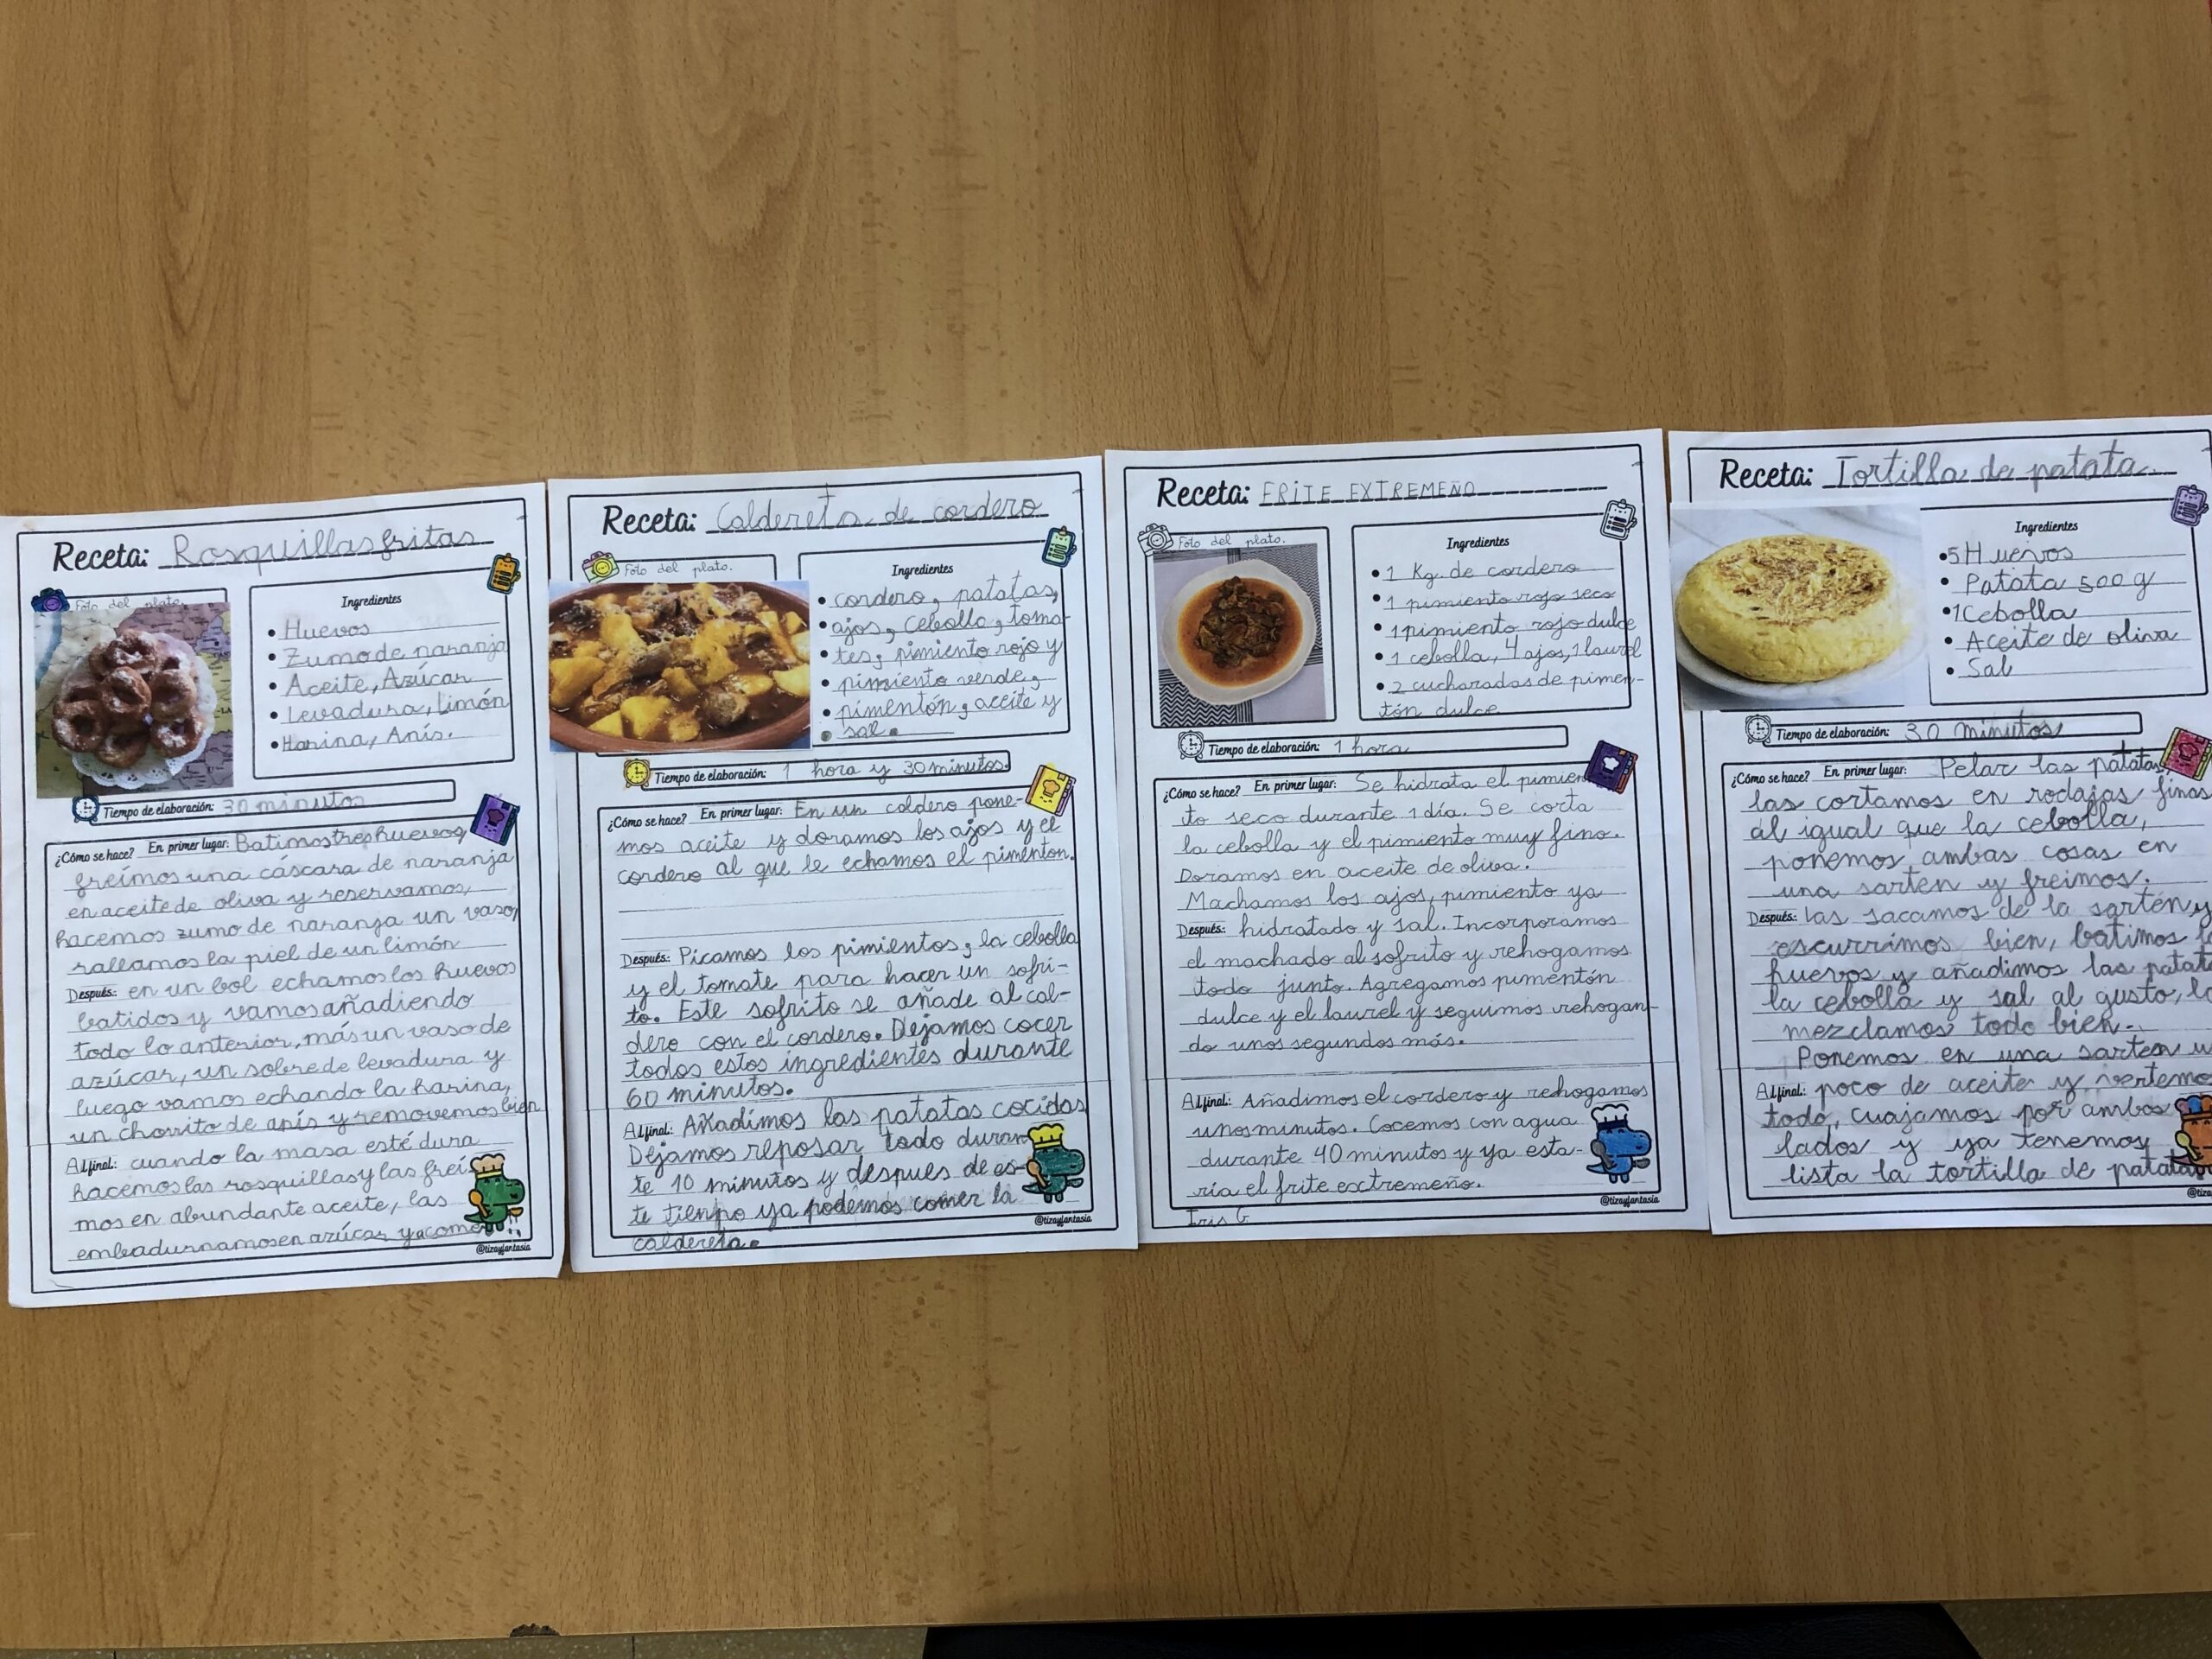 Receta: Rosquillas fritas
Foto del plato.
Ingredientes
• Huevos
• Zumo de naranja
• Aceite, Azúcar
• Levadura, Limón
• Harina, Anís.
Tiempo de elaboración: 30 minutos
¿Cómo se hace? En primer lugar: Batimos tres huevos,
freímos una cáscara de naranja
en aceite de oliva y reservamos,
hacemos zumo de naranja un vaso,
rallamos la piel de un limón
Después: en un bol echamos los huevos
batidos y vamos añadiendo
todo lo anterior, más un vaso de
azúcar, un sobre de levadura y
luego vamos echando la harina,
un chorrito de anís y removemos bien
Al final: cuando la masa esté dura
hacemos las rosquillas y las freí
mos en abundante aceite, las
embadurnamos en azúcar y a come
@tizayfantasia
Receta: Caldereta de cordero
Foto del plato.
Ingredientes
• cordero, patatas,
• ajos, cebolla, toma-
• tes, pimiento rojo y
• pimiento verde,
• pimentón, aceite y
• sal.
Tiempo de elaboración: 1 hora y 30 minutos.
¿Cómo se hace? En primer lugar: En un caldero pone-
mos aceite y doramos los ajos y el
cordero al que le echamos el pimentón.
Después: Picamos los pimientos, la cebolla
y el tomate para hacer un sofri-
to. Este sofrito se añade al cal-
dero con el cordero. Dejamos cocer
todos estos ingredientes durante
60 minutos.
Al final: Añadimos las patatas cocidas
Dejamos reposar todo duran
te 10 minutos y despues de es-
te tiempo ya podemos comer la
caldereta.
@tizayfantasia
Receta: FRITE EXTREMEÑO
Foto del plato.
Ingredientes
• 1 Kg. de cordero
• 1 pimiento rojo seco
• 1 pimiento rojo dulce
• 1 cebolla, 4 ajos, 1 laurel
• 2 cucharadas de pimen-
tón dulce
Tiempo de elaboración: 1 hora
¿Cómo se hace? En primer lugar: Se hidrata el pimien
to seco durante 1 día. Se corta
la cebolla y el pimiento muy fino.
Doramos en aceite de oliva.
Machamos los ajos, pimiento ya
Después: hidratado y sal. Incorporamos
el machado al sofrito y rehogamos
todo junto. Agregamos pimentón
dulce y el laurel y seguimos rehogan-
do unos segundos más.
Al final: Añadimos el cordero y rehogamos
unos minutos. Cocemos con agua
durante 40 minutos y ya esta-
ría el frite extremeño.
Iris G
@tizayfantasia
Receta: Tortilla de patata
Ingredientes
• 5 Huevos
• Patata 500 g
• 1 Cebolla
• Aceite de oliva
• Sal
Tiempo de elaboración: 30 minutos
¿Cómo se hace? En primer lugar: Pelar las patatas,
las cortamos en rodajas finas
al igual que la cebolla,
ponemos ambas cosas en
una sarten y freimos.
Después: las sacamos de la sartén y
escurrimos bien, batimos
huevos y añadimos las patat
la cebolla y sal al gusto, lo
mezclamos todo bien.
Ponemos en una sarten u
Al final: poco de aceite y vertemo
todo, cuajamos por ambos
lados y ya tenemos
lista la tortilla de patata
@tiza